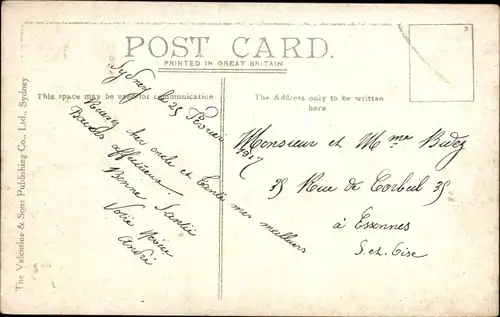 POST CARD.
PRINTED IN GREAT BRITAIN
This space may be used for communication
The Address only to be written
here
The Valentine & Sons Publishing Co., Ltd., Sydney
Sydney le 25 Février 1917
cher oncle et Tante mes meilleurs
Baisers affectueux.
Bonne Santée
Votre Neveu
André
Monsieur et Mme
35 Rue de Corbeil 35
à Essonnes
S. et. Oise